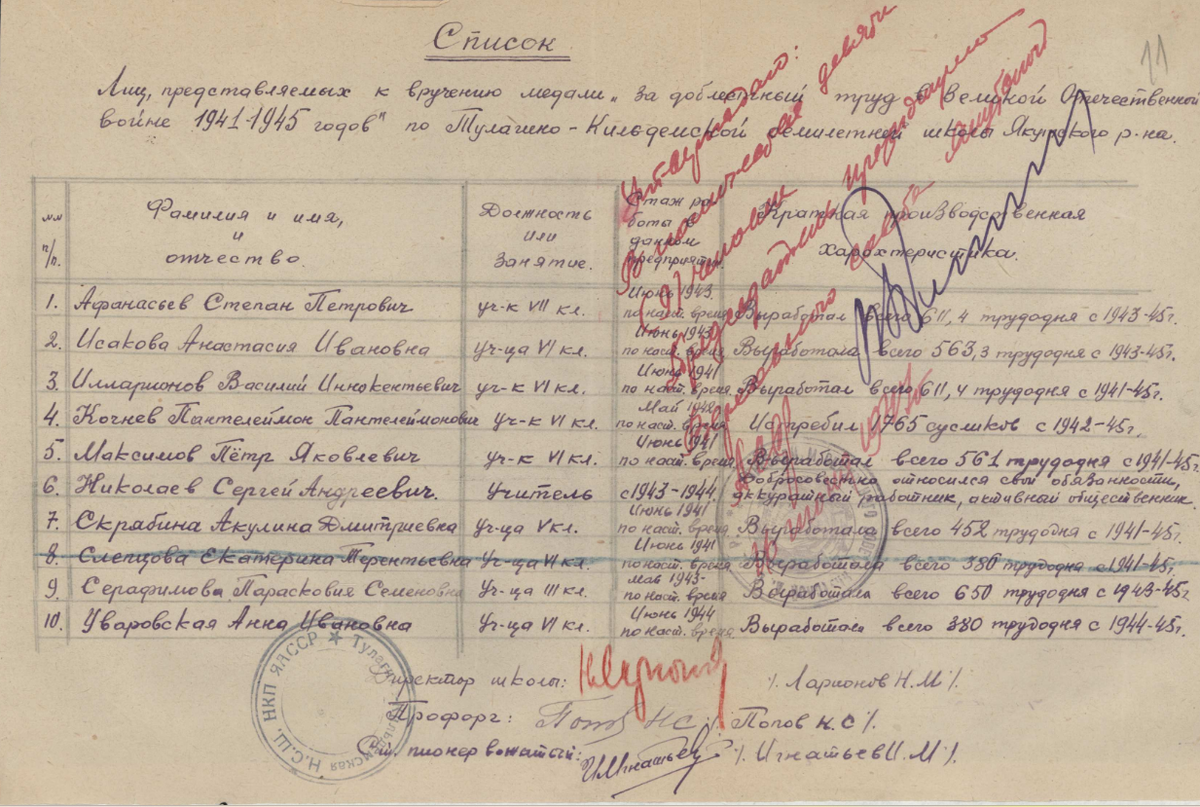 11
Список
Лиц, представляемых к вручению медали „За доблестный труд в Великой Отечественной
войне 1941-1945 годов" по Тулагино-Кильдемской семилетной школы Якутского р-на.
№№ п/п. Фамилия и имя, и отчество. Должность или занятие. Стаж работы в данном предприятии. Краткая производственная характеристика.
1. Афанасьев Степан Петрович уч-к VII кл. Июнь 1943 по наст. время Выработал всего 611,4 трудодня с 1943-45г.
2. Исакова Анастасия Ивановна Уч-ца VI кл. Июнь 1943 по наст. время Выработала всего 563,3 трудодня с 1943-45г.
3. Илларионов Василий Иннокентьевич уч-к VI кл. Июнь 1941 по наст. время Выработал всего 611,4 трудодня с 1941-45г.
4. Кочнев Пантелеймон Пантелеймонович Уч-к VI кл. Май 1942 по наст. время Истребил 1765 сусликов с 1942-45г.
5. Максимов Пётр Яковлевич Уч-к VI кл. Июнь 1941 по наст. время Выработал всего 561 трудодня с 1941-45г.
6. Николаев Сергей Андреевич. Учитель с 1943-1944. Добросовестно относился свои обязанности, аккуратный работник, активный общественник.
7. Скрябина Акулина Дмитриевна Уч-ца V кл. Июнь 1941 по наст. время Выработала всего 452 трудодня с 1941-45г.
8. Слепцова Екатерина Терентьевна Уч-ца VI кл. Июнь 1941 по наст. время Выработала всего 386 трудодня с 1941-45г.
9. Серафимова Парасковия Семеновна Уч-ца III кл. Мая 1943- по наст. время Выработала всего 650 трудодня с 1943-45г.
10. Уваровская Анна Ивановна Уч-ца VI кл. Июнь 1944 по наст. время Выработала всего 380 трудодня с 1944-45г.
Утверждаю:
В количестве девяти
(9) человек
Председатель президиума
Верховного совета
Директор школы: ٪ Ларионов Н.М ٪.
Профорг: Попов НС ٪ Попов Н.С ٪.
Ст. пионер вожатый: ИМгнатьев ٪ Игнатьев И.М ٪.
Н.С.Ш. НКП ЯАССР ★ Тулагино-Кильдемская